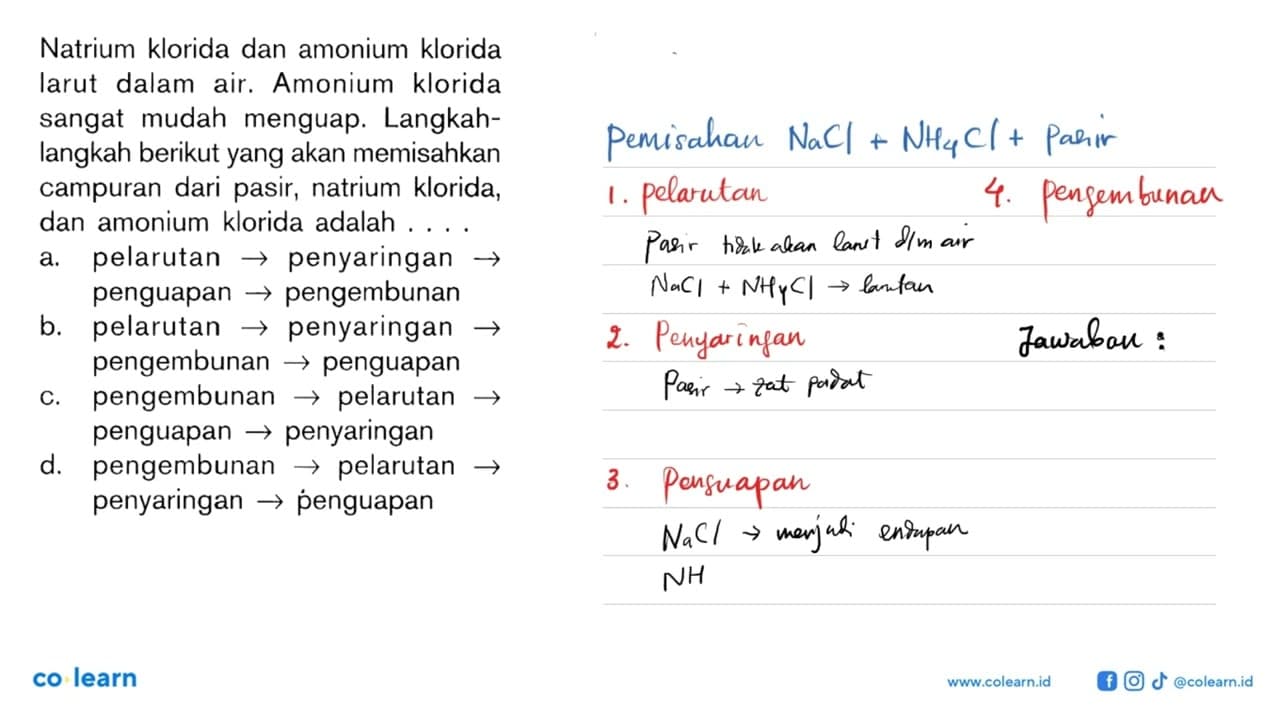 Natrium klorida dan amonium klorida
larut dalam air. Amonium klorida
sangat mudah menguap. Langkah-
langkah berikut yang akan memisahkan
campuran dari pasir, natrium klorida,
dan amonium klorida adalah . . . .
a. pelarutan → penyaringan →
penguapan → pengembunan
b. pelarutan → penyaringan →
pengembunan → penguapan
c. pengembunan → pelarutan →
penguapan → penyaringan
d. pengembunan → pelarutan →
penyaringan → penguapan
Pemisahan NaCl + NH4Cl + Pasir
1. Pelarutan
Pasir tidak akan larut d/m air
NaCl + NH4Cl → larutan
2. Penyaringan
Pasir → zat padat
3. Penguapan
NaCl → menjadi endapan
NH
4. Pengembunan
Jawaban :
co learn
www.colearn.id
@colearn.id